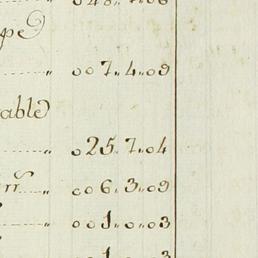 pe
" 007.4.09
able
" 025.7.04
" 006.3.09
" 001.0.03